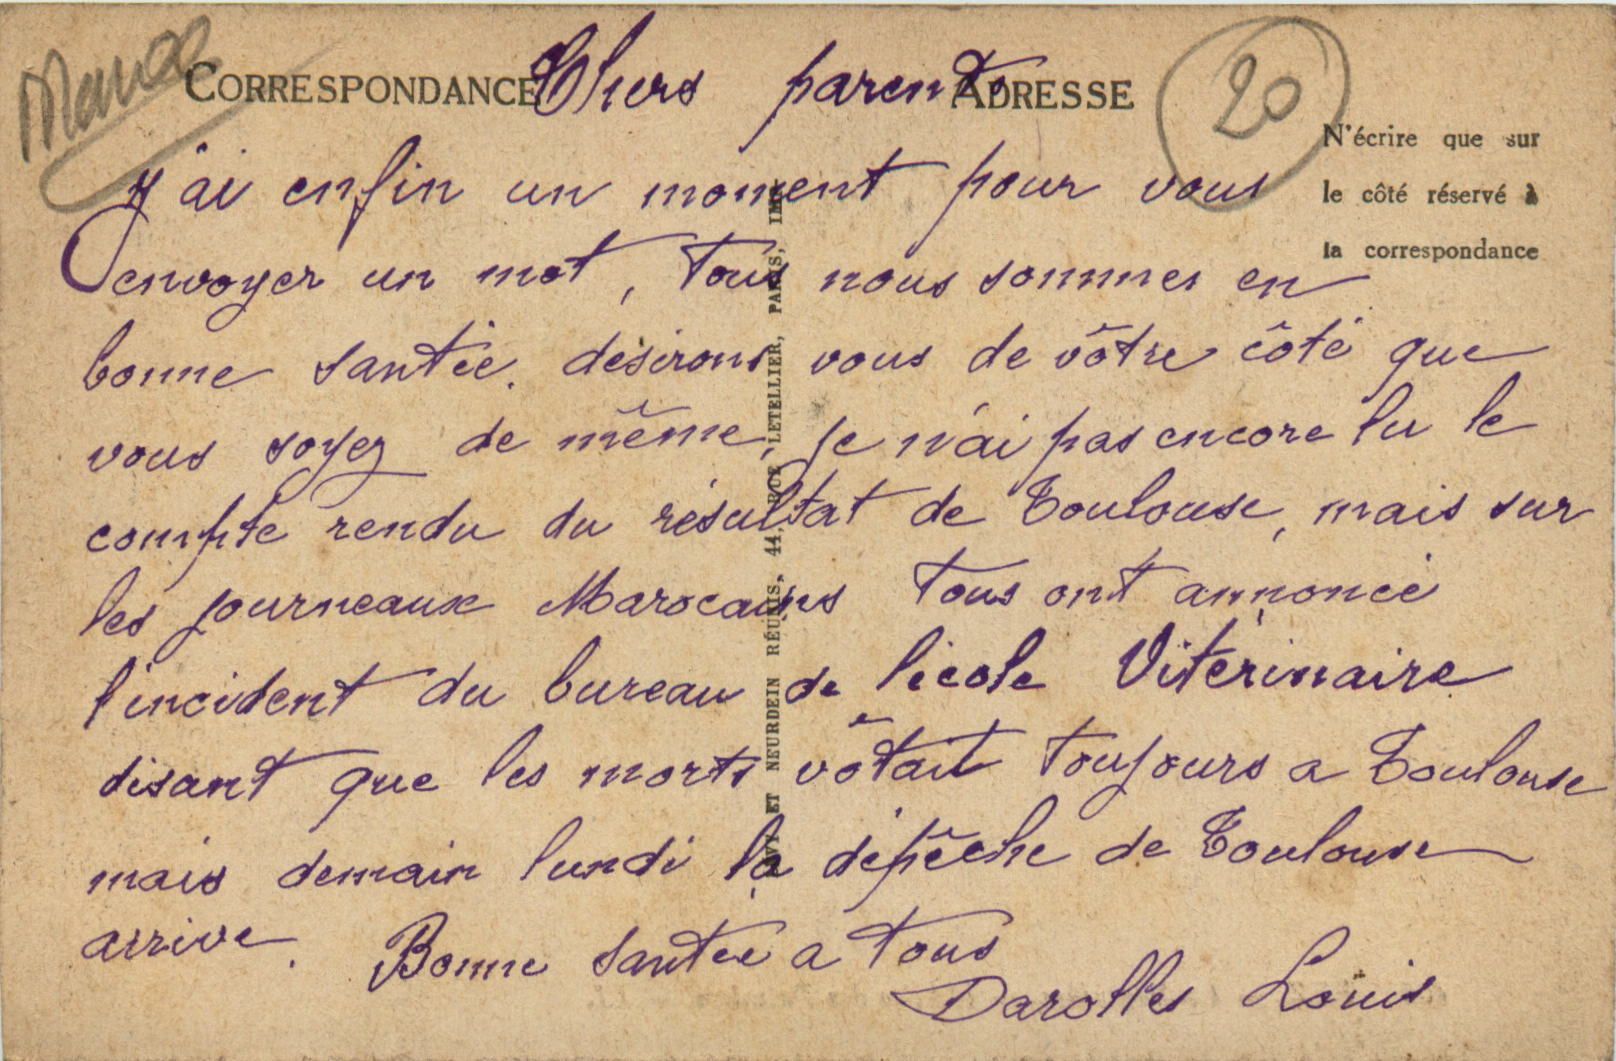 Maroc
CORRESPONDANCE
ADRESSE
20
N'écrire que sur
le côté réservé à
la correspondance
Chers parents
J'ai enfin un moment pour vous
envoyer un mot, tous nous sommes en
bonne santée. désirons vous de vôtre côté que
vous soyez de même, je n'ai pas encore lu le
compte rendu du résultat de Toulouse, mais sur
les journeaux Marocains tous ont annoncé
l'incident du bureau de l'école Vitérinaire
disant que les morts vôtait toujours a Toulouse
mais demain lundi la dépêche de Toulouse
arrive. Bonne santée a tous
Darolles Louis
LEVY ET NEURDEIN RÉUNIS, 44, RUE LETELLIER, PARIS, IMP.